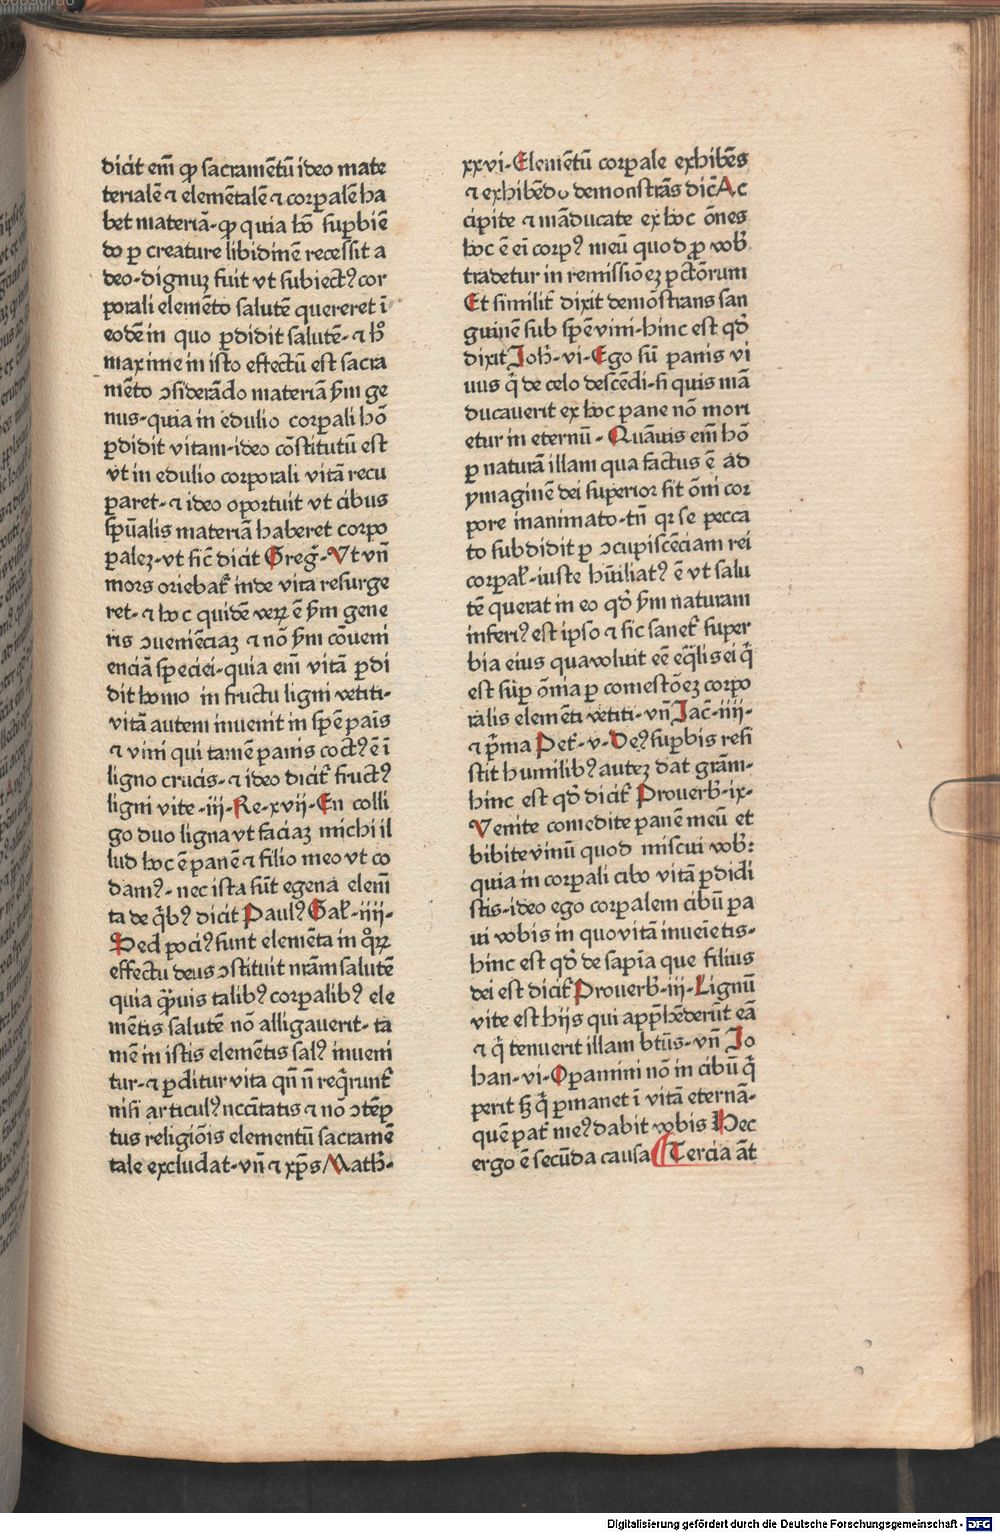 dicit em̄ ꝙ sacramētū ideo mate
terialē ⁊ elemētalē ⁊ corꝑalē ha
bet materiā-ꝙ quia hō suꝑbiē
do ꝑ creature libidinē recessit a
deo-dignuꝫ fuit vt subiectꝰ cor
porali elemēto salutē quereret ī
eodē in quo ꝑdidit salutē-⁊ hꝰ
maxime in isto effectū est sacra
mēto ↄsiderādo materiā ẜm ge
nus-quia in edulio corꝑali hō
ꝑdidit vitam-ideo cōstitutū est
vt in edulio corporali vitā recu
ꝑaret-⁊ ideo oportuit vt cibus
spūalis materiā haberet corpo
ꝑaleꝫ-vt sic̄ dicit Greg̃-Vt vn̄
mors oriebat̄ inde vita resurge
ret-⁊ hoc quidē veꝝ ē ẜm gene
ris ↄueniēciaꝫ ⁊ nō ẜm cōueni
enciā speciei-quia em̄ vitā ꝑdi
dit homo in fructu ligni vetiti-
vitā autem inuenit in sp̄e pais
⁊ vini qui tamē panis coctꝰ ē ī
ligno crucis-⁊ ideo dicit̄ fructꝰ
ligni vite-iii-Re-xvij-En colli
go duo ligna vt faciaꝫ michi il
lud hoc ē panē ⁊ filio meo vt co
damꝰ-nec ista sūt egena elem̄
ta de q̄bꝰ dicit Paulꝰ Gal̄-iiij-
Sed pociꝰ sunt elemēta in qͦꝝ
effectu deus ↄstituit nr̄am salutē
quia ꝙ̄uis talibꝰ corꝑalibꝰ ele
mētis salutē nō alligauerit-ta
mē in istis elemētis salꝰ inueni
tur-⁊ ꝑditur vita qn̄ n̄ req̄runt̄
nisi articulꝰ nccītatis ⁊ nō ↄtēꝑ
tus religiōis elementū sacramē
tale excludat-vn̄ ⁊ xp̄s Math̄-
xxvi-Elemētū corꝑale exhibēs
⁊ exhibēdo demonstrās dic̄ Ac
cipite ⁊ māducate ex hoc ōnes
hoc ē ei corpꝰ meū quod ꝓ vob̄
tradetur in remissiōeꝫ pctōrum
Et similit̄ dixit demōstrans san
guinē sub sp̄e vini-hinc est qd̄
dixit Joh̄-vi-Ego sū panis vi
uus q̄ de celo descēdi-si quis mā
ducauerit ex hoc pane nō mori
etur in eternū-Quāuis em̄ hō
ꝑ naturā illam qua factus ē ad
ymaginē dei superior sit ōni cor
pore inanimato-tn̄ qꝛ se pecca
to subdidit ꝑ ↄcupiscēciam rei
corꝑal̄-iuste hūiliatꝰ ē vt salu
tē querat in eo qd̄ ẜm naturam
inferiꝰ est ipso ⁊ sic sanet̄ super
bia eius qua voluit eē eq̄lis ei q̄
est suꝑ ōnia ꝑ comestōeꝫ corpo
ralis elemēti vetiti-vn̄ Jac̄-iiij-
⁊ p̄ma Pet̄-v-Deꝰ suꝑbis resi
stit humilibꝰ auteꝫ dat gr̄am-
hinc est qd̄ dicit̄ Prouerb̄-ix-
Venite comedite panē meū et
bibite vinū quod miscui vob̄:
quia in corꝑali cibo vitā ꝑdidi
stis-ideo ego corꝑalem cibū pa
ui vobis in quo vitā inueīetis-
hinc est qd̄ de sapīa que filius
dei est dicit̄ Prouerb̄-iij-Lignū
vite est hijs qui app̄hēderūt eā
⁊ q̄ tenuerit illam btūs-vn̄ Jo
han-vi-Oꝑamini nō in cibū q̄
perit sꝫ q̄ ꝑmanet ī vitā eternā-
quē pat̄ meꝰ dabit vobis Hec
ergo ē secūda causa Tercia āt
Digitalisierung gefördert durch die Deutsche Forschungsgemeinschaft - DFG